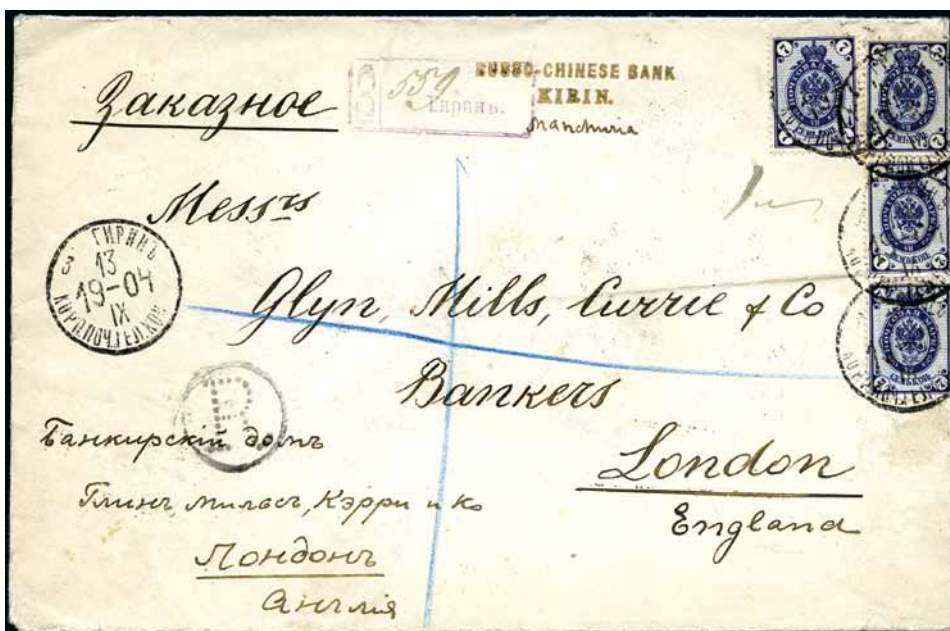 Заказное
559
Гиринъ.
RUSSO-CHINESE BANK
KIRIN.
Manchuria
7 7
СЕМЬ КОП.
Messrs
ГИРИНЪ
13
19-04
IX
Glyn, Mills, Currie & Co
Bankers
London
England
R
Банкирскій домъ
Глинъ, Милльсъ, Кэрри и Ко
Лондонъ
Англія